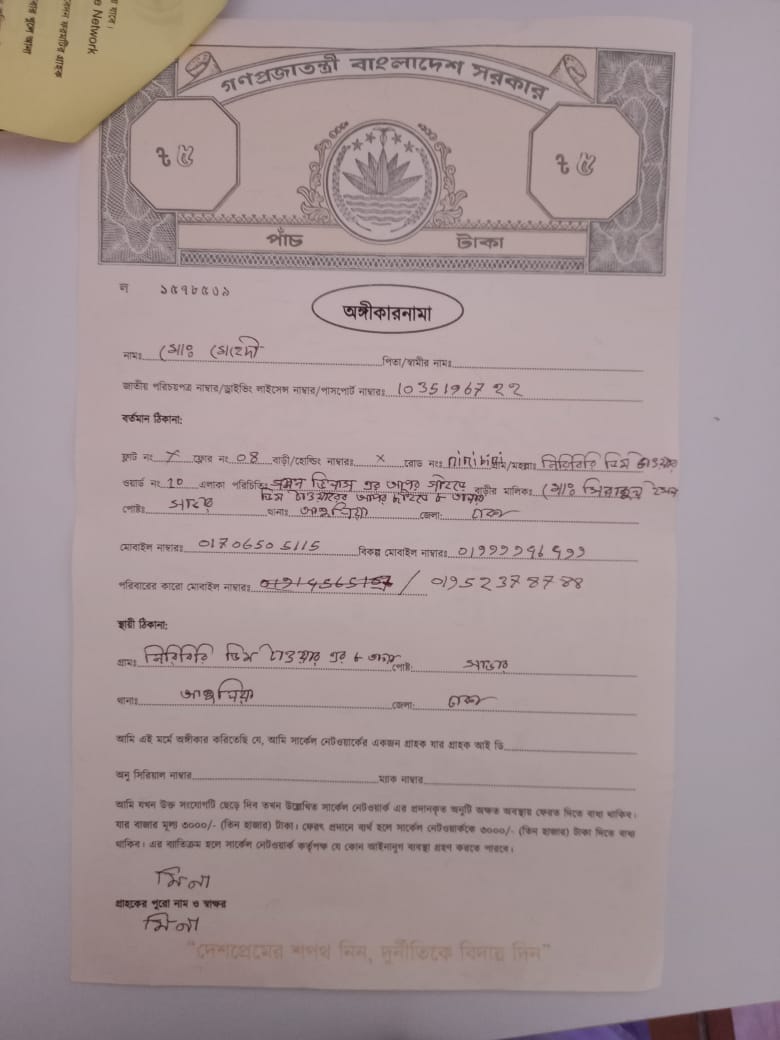 e Network
গণপ্রজাতন্ত্রী বাংলাদেশ সরকার
৳ ৫ ৳ ৫
পাঁচ টাকা
ল ১৫৭৮৫০৯
অঙ্গীকারনামা
নামঃ মোঃ মেহেদী পিতা/স্বামীর নামঃ
জাতীয় পরিচয়পত্র নাম্বার/ড্রাইভিং লাইসেন্স নাম্বার/পাসপোর্ট নাম্বারঃ 1035196722
বর্তমান ঠিকানা:
ফ্লাট নং X ফ্লোর নং 08 বাড়ী/হোল্ডিং নাম্বারঃ X রোড নংঃ niribiri গ্রাম/মহল্লাঃ নিরিবিরি ডিস টাওয়ার
ওয়ার্ড নং 10 এলাকা পরিচিতিঃ এর বাড়ীর মালিকঃ মোঃ
ডিস টাওয়ারের
পোষ্টঃ সাভার থানাঃ আশুলিয়া জেলা: ঢাকা
মোবাইল নাম্বারঃ 01706505115 বিকল্প মোবাইল নাম্বারঃ
পরিবারের কারো মোবাইল নাম্বারঃ / 01952378788
স্থায়ী ঠিকানা:
গ্রামঃ নিরিবিরি ডিস টাওয়ার এর ৮ তালা পোষ্ট: সাভার
থানাঃ আশুলিয়া জেলা: ঢাকা
আমি এই মর্মে অঙ্গীকার করিতেছি যে, আমি সার্কেল নেটওয়ার্কের একজন গ্রাহক যার গ্রাহক আই ডি
অনু সিরিয়াল নাম্বার ম্যাক নাম্বার
আমি যখন উক্ত সংযোগটি ছেড়ে দিব তখন উল্লেখিত সার্কেল নেটওয়ার্ক এর প্রদানকৃত অনুটি অক্ষত অবস্থায় ফেরত দিতে বাধ্য থাকিব।
যার বাজার মূল্য ৩০০০/- (তিন হাজার) টাকা। ফেরৎ প্রদানে ব্যর্থ হলে সার্কেল নেটওয়ার্ককে ৩০০০/- (তিন হাজার) টাকা দিতে বাধ্য
থাকিব। এর ব্যতিক্রম হলে সার্কেল নেটওয়ার্ক কর্তৃপক্ষ যে কোন আইনানুগ ব্যবস্থা গ্রহণ করতে পারবে।
মিনা
গ্রাহকের পুরো নাম ও স্বাক্ষর
মিনা
"দেশপ্রেমের শপথ নিন, দুর্নীতিকে বিদায় দিন"